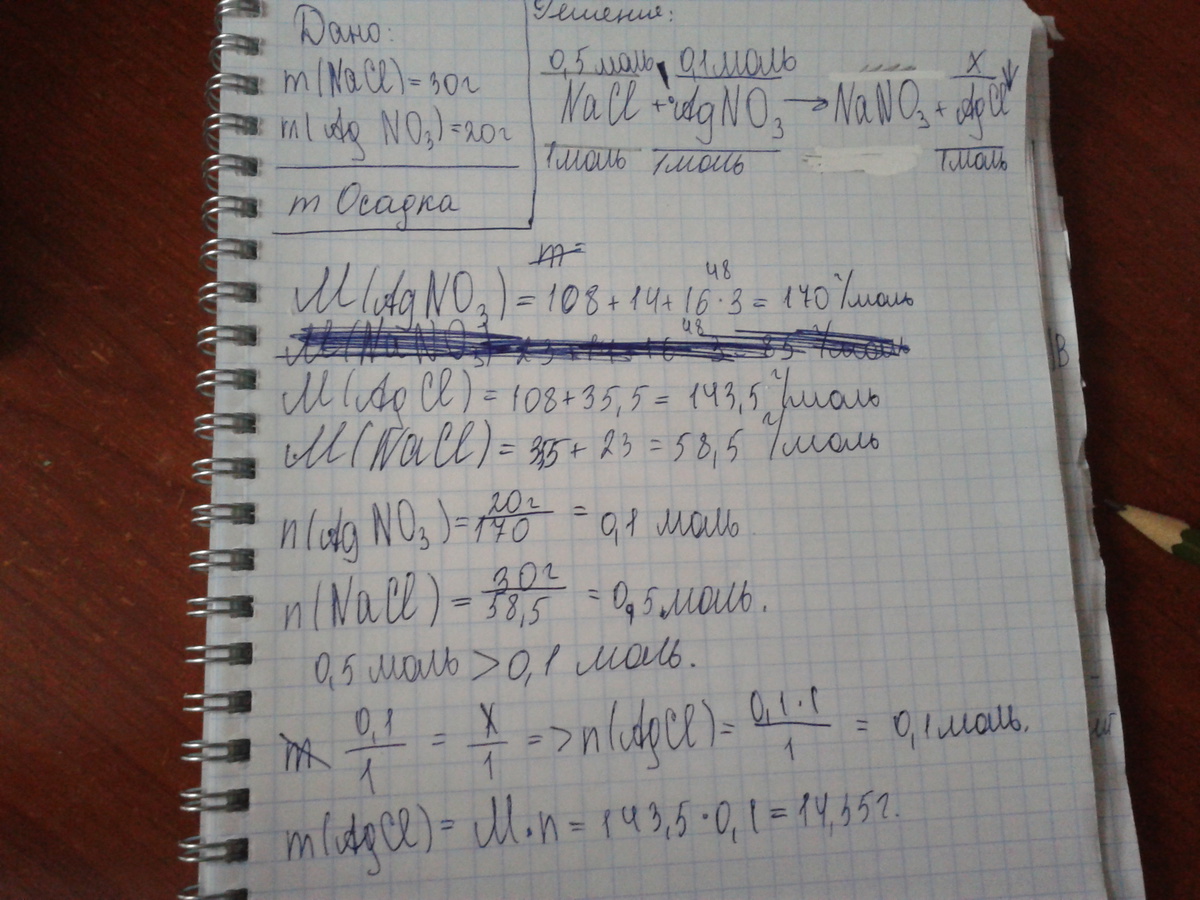 Дано:
m(NaCl)=30г
m(AgNO₃)=20г
m Осадка
Решение:
0,5 моль 0,1 моль x
NaCl + AgNO₃ → NaNO₃ + AgCl↓
1моль 1моль 1моль
m=
M(AgNO₃) = 108 + 14 + 16·3 = 170 г/моль
48
M(AgCl) = 108+35,5 = 143,5 г/моль
M(NaCl) = 35,5 + 23 = 58,5 г/моль
n(AgNO₃) = 20г/170 = 0,1 моль
n(NaCl) = 30г/58,5 = 0,5 моль.
0,5 моль > 0,1 моль.
0,1/1 = x/1 => n(AgCl) = 0,1·1/1 = 0,1 моль.
m(AgCl) = M·n = 143,5·0,1 = 14,35г.